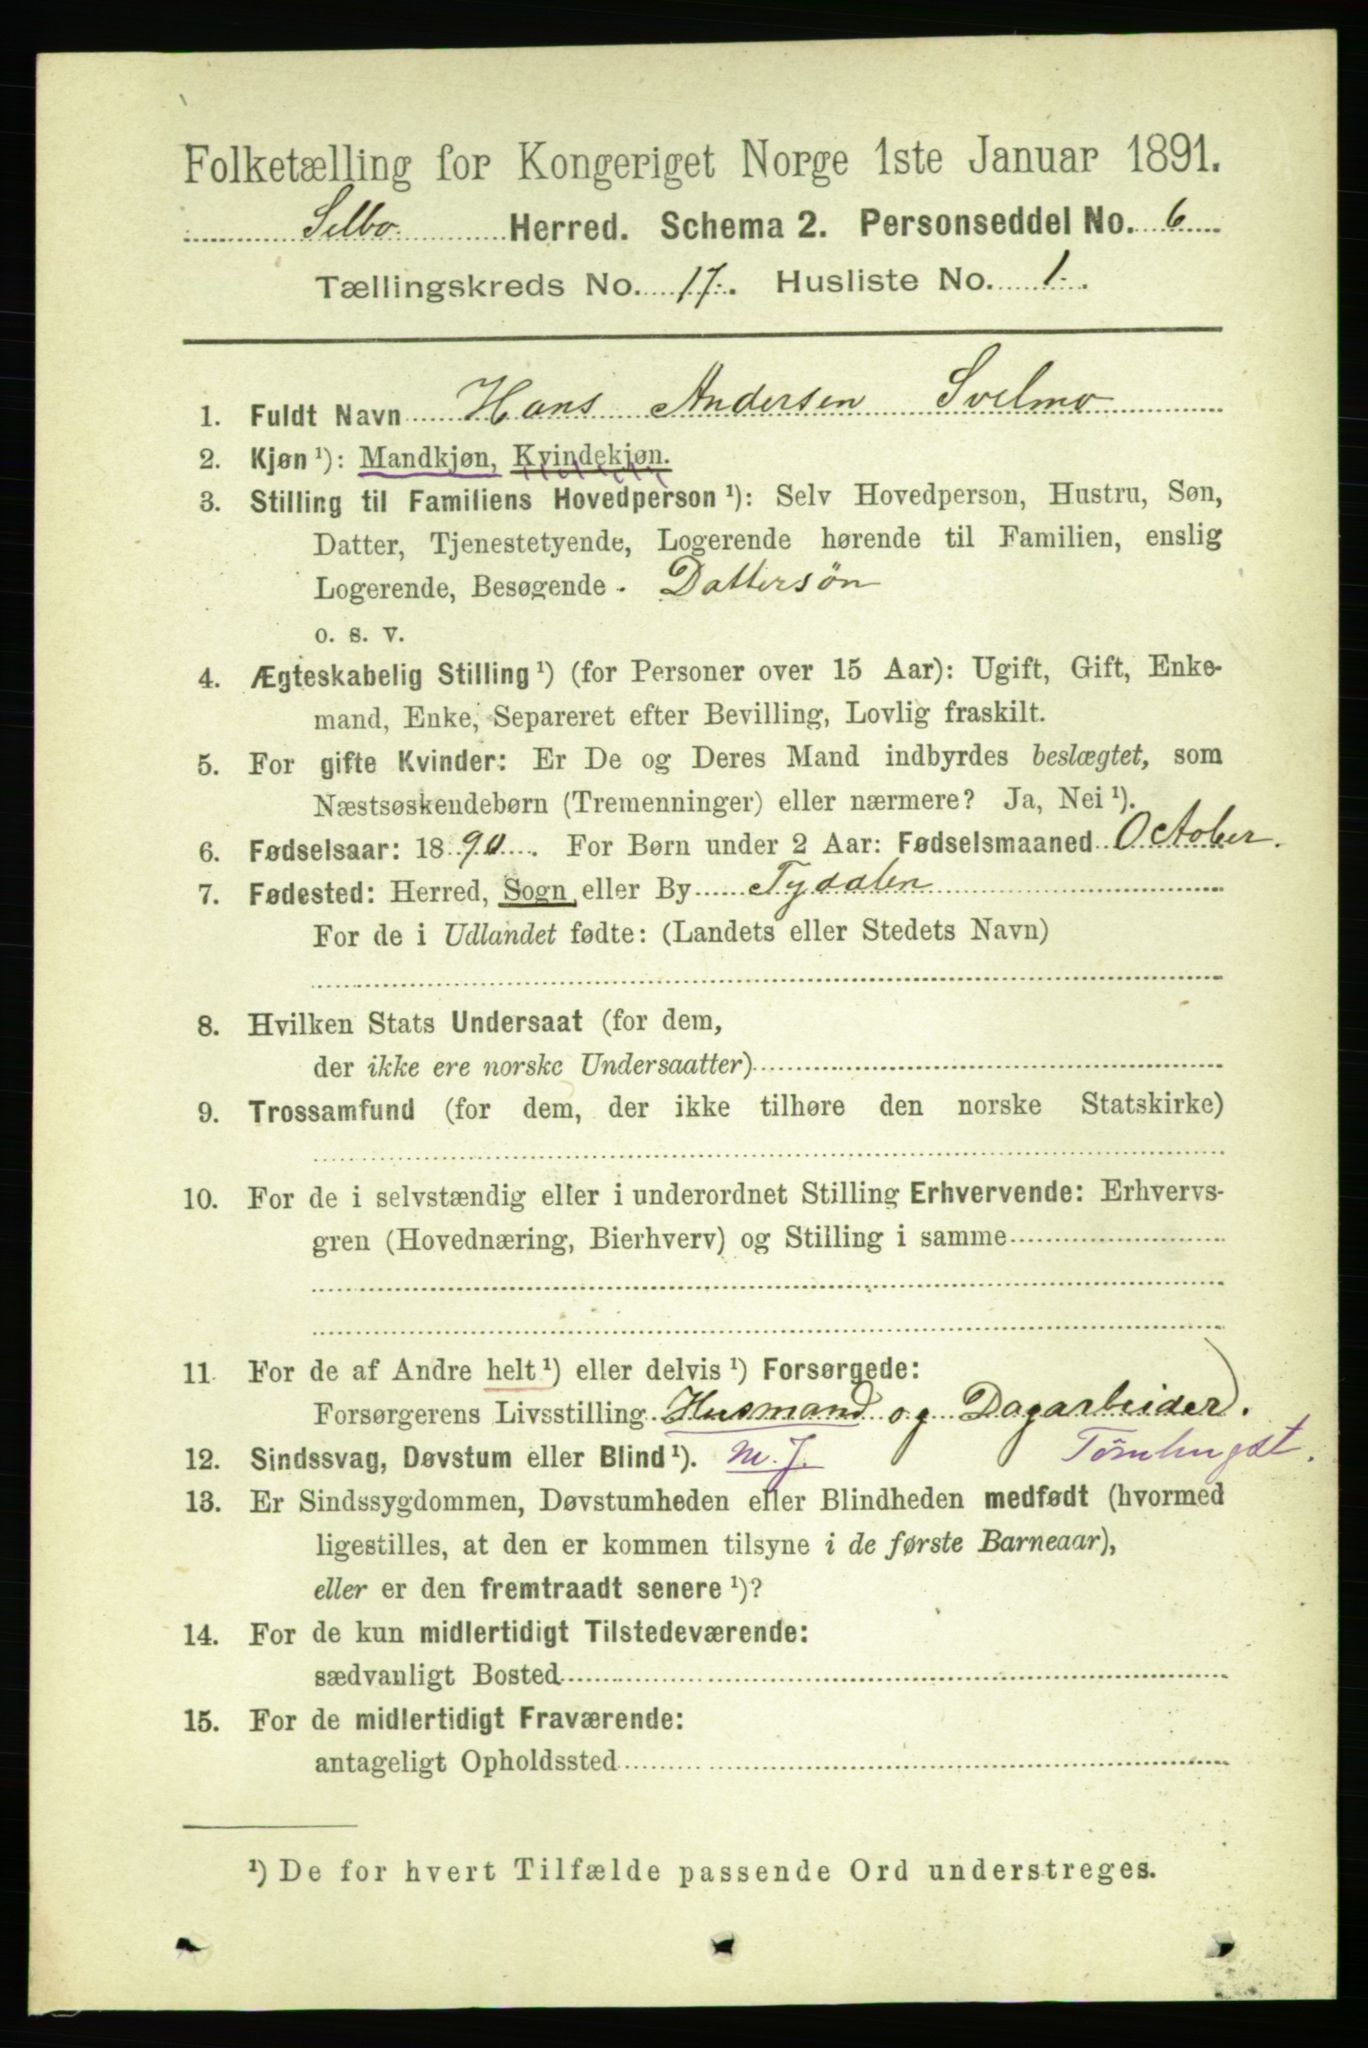 Folketælling for Kongeriget Norge 1ste Januar 1891.
Selbo Herred. Schema 2. Personseddel No. 6
Tællingskreds No. 17. Husliste No. 1.
1. Fuldt Navn Hans Andersen Svelmo
2. Kjøn ¹): Mandkjøn, Kvindekjøn.
3. Stilling til Familiens Hovedperson ¹): Selv Hovedperson, Hustru, Søn,
Datter, Tjenestetyende, Logerende hørende til Familien, enslig
Logerende, Besøgende . Dattersøn
o. s. v.
4. Ægteskabelig Stilling ¹) (for Personer over 15 Aar): Ugift, Gift, Enke-
mand, Enke, Separeret efter Bevilling, Lovlig fraskilt.
5. For gifte Kvinder: Er De og Deres Mand indbyrdes beslægtet, som
Næstsøskendebørn (Tremenninger) eller nærmere? Ja, Nei ¹).
6. Fødselsaar: 1890. For Børn under 2 Aar: Fødselsmaaned October.
7. Fødested: Herred, Sogn, eller By Tydalen
For de i Udlandet fødte: (Landets eller Stedets Navn)
8. Hvilken Stats Undersaat (for dem,
der ikke ere norske Undersaatter)
9. Trossamfund (for dem, der ikke tilhøre den norske Statskirke)
10. For de i selvstændig eller i underordnet Stilling Erhvervende: Erhvervs-
gren (Hovednæring, Bierhverv) og Stilling i samme
11. For de af Andre helt ¹) eller delvis ¹) Forsørgede:
Forsørgerens Livsstilling Husmand og Dagarbeider).
12. Sindssvag, Døvstum eller Blind ¹). m. J.
13. Er Sindssygdommen, Døvstumheden eller Blindheden medfødt (hvormed
ligestilles, at den er kommen tilsyne i de første Barneaar),
eller er den fremtraadt senere ¹)?
14. For de kun midlertidigt Tilstedeværende:
sædvanligt Bosted
15. For de midlertidigt Fraværende:
antageligt Opholdssted
¹) De for hvert Tilfælde passende Ord understreges.